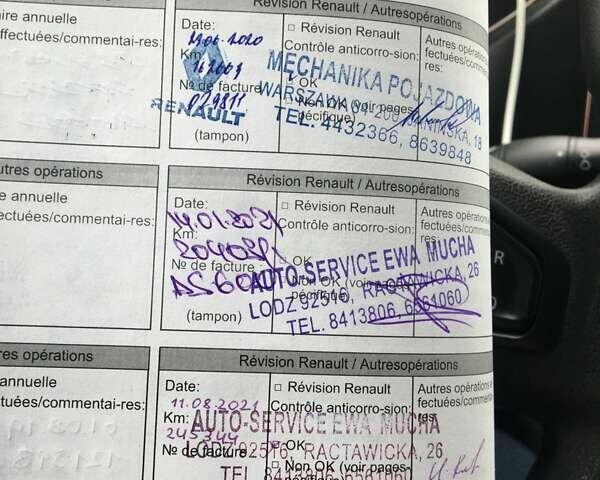 Révision Renault / Autresopérations
aire annuelle
effectuées/commentai-res:
Date:
29.06.2020
Km:
162009
№ de facture
029811
RENAULT
(tampon)
□ Révision Renault
Contrôle anticorro-sion:
OK
Non OK (voir pages
pécifique)
Autres
res:
MECHANIKA POJAZDOWA
WARSZAWA 04-206
18
TEL. 4432366, 8639848
utres opérations
Révision Renault / Autresopérations
e annuelle
fectuées/commentai-res:
Date:
14.01.2021
Km:
№ de facture
(tampon)
□ Révision Renault
Contrôle anticorro-sion:
OK
Non OK (voir pages
pécifique)
Autres
res:
AUTO-SERVICE EWA MUCHA
LODZ 92516, RACTAWICKA, 26
TEL. 8413806, 6561060
res opérations
Révision Renault / Autresopérations
annuelle
tuées/commentai-res:
Date:
11.08.2021
Km:
245344
№ de facture
□ Révision Renault
Contrôle anticorro-sion:
□ OK
□ Non OK (voir pages-
Autres opérations
res:
AUTO-SERVICE EWA MUCHA
LODZ 92516, RACTAWICKA, 26
TEL. 8413806, 6561060